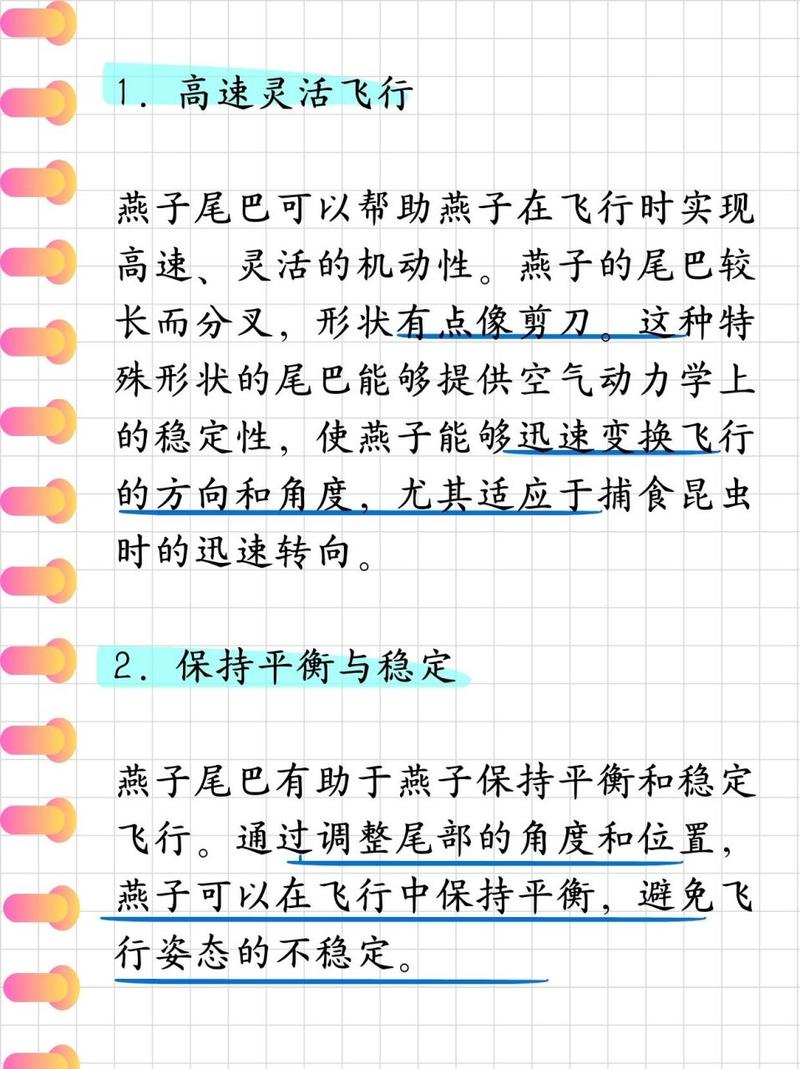 1. 高速灵活飞行
燕子尾巴可以帮助燕子在飞行时实现
高速、灵活的机动性。燕子的尾巴较
长而分叉，形状有点像剪刀。这种特
殊形状的尾巴能够提供空气动力学上
的稳定性，使燕子能够迅速变换飞行
的方向和角度，尤其适应于捕食昆虫
时的迅速转向。
2. 保持平衡与稳定
燕子尾巴有助于燕子保持平衡和稳定
飞行。通过调整尾部的角度和位置，
燕子可以在飞行中保持平衡，避免飞
行姿态的不稳定。